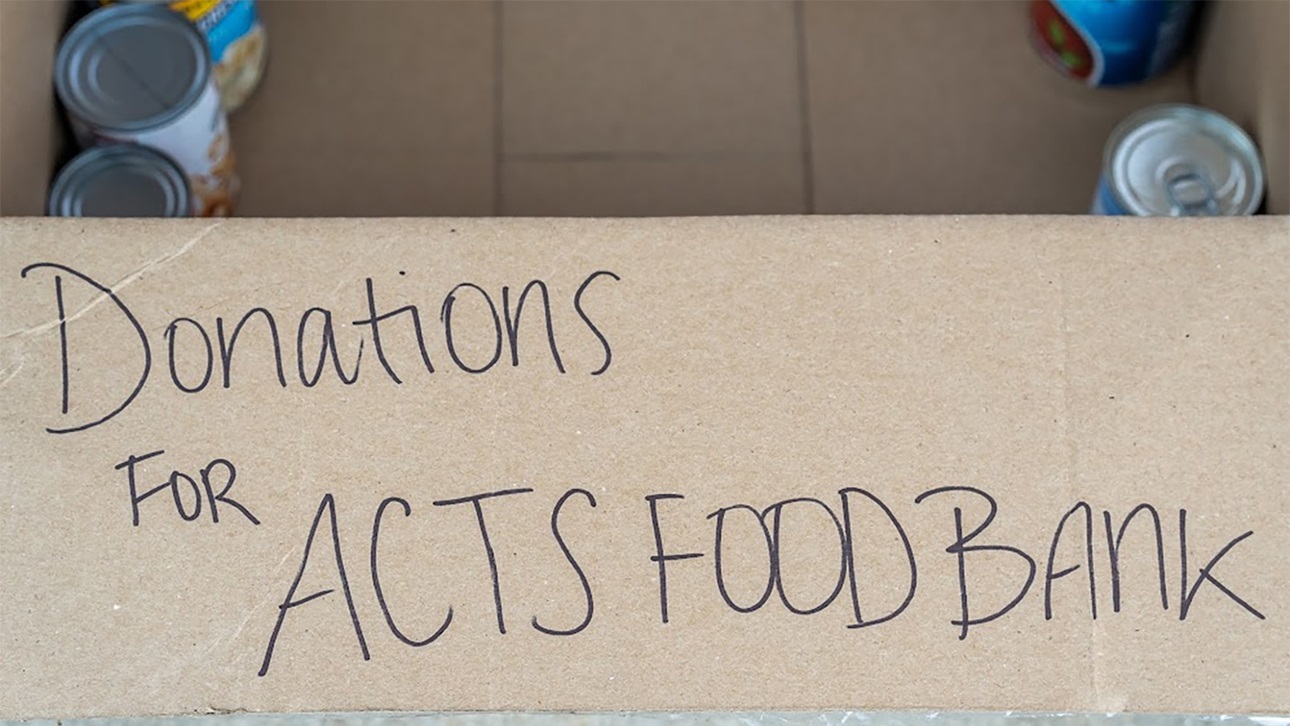 Donations
FOR
ACTS FOOD BANK